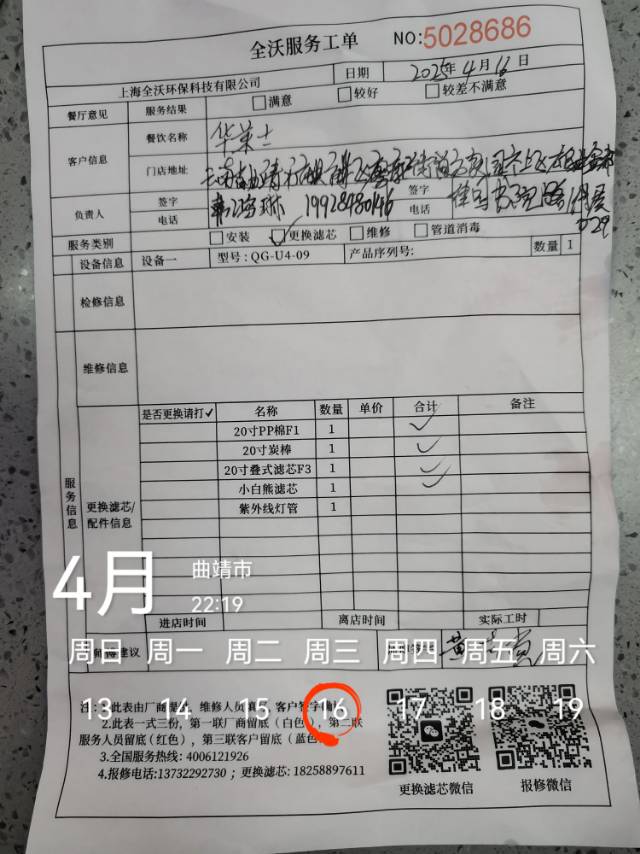 全沃服务工单 NO:5028686
上海全沃环保科技有限公司 日期 2025年4月16日
餐厅意见 服务结果 满意 较好 较差不满意
客户信息 餐饮名称 华莱士
门店地址
负责人 签字 签字
电话 19928480146 电话
服务类别 安装 更换滤芯 维修 管道消毒
设备信息 设备一 型号: QG-U4-09 产品序列号: 数量 1
检修信息
维修信息
服务信息
更换滤芯/配件信息
是否更换请打✓ 名称 数量 单价 合计 备注
20寸PP棉F1 1 ✓
20寸炭棒 1 ✓
20寸叠式滤芯F3 1 ✓
小白熊滤芯 1 ✓
紫外线灯管 1
4月 曲靖市
22:19
进店时间 离店时间 实际工时
建议
周日 周一 周二 周三 周四 周五 周六
13 14 15 16 17 18 19
注:1.此表由厂商提供,维修人员填写,客户签字确认
2.此表一式三份,第一联厂商留底(白色),第二联
服务人员留底(红色),第三联客户留底(蓝色)
3.全国服务热线: 4006121926
4.报修电话:13732292730 ; 更换滤芯: 18258897611
更换滤芯微信 报修微信